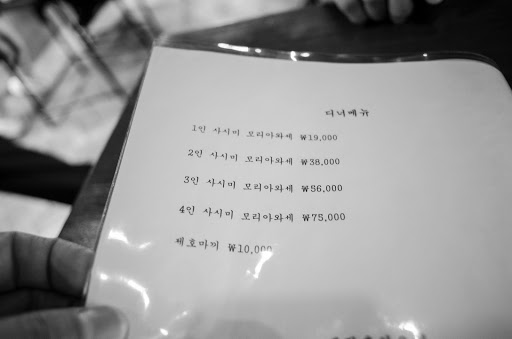 디너메뉴
1인 사시미 모리아와세 ₩19,000
2인 사시미 모리아와세 ₩38,000
3인 사시미 모리아와세 ₩56,000
4인 사시미 모리아와세 ₩75,000
제호마끼 ₩10,000